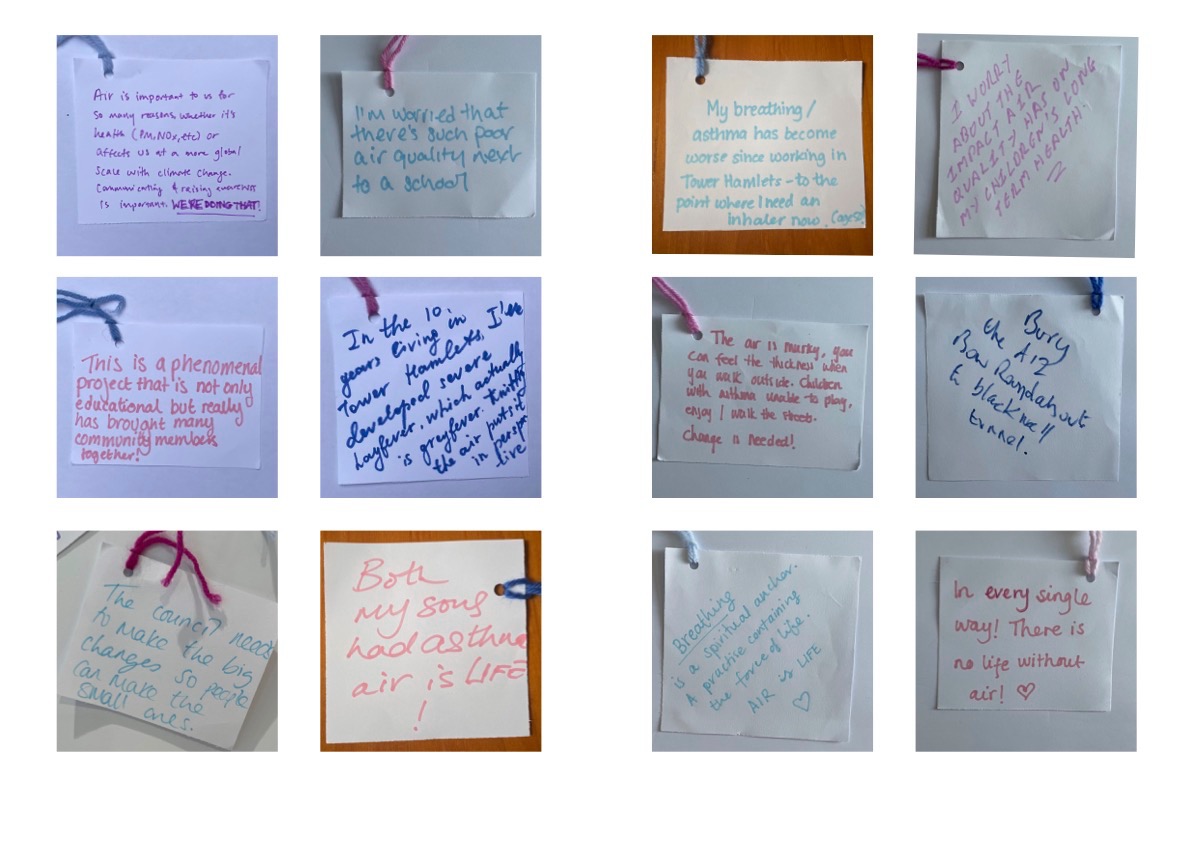 Air is important to us for
so many reasons, whether it's
health (PM, NOx, etc) or
affects us at a more global
scale with climate change.
Communicating & raising awareness
is important. WE'RE DOING THAT!
I'm worried that
there's such poor
air quality next
to a school
My breathing/
asthma has become
worse since working in
Tower Hamlets - to the
point where I need an
inhaler now.
I WORRY
ABOUT THE
IMPACT AIR
QUALITY HAS ON
MY CHILDREN'S LONG
TERM HEALTH
This is a phenomenal
project that is not only
educational but really
has brought many
community members
together!
In the 10
years living in
Tower Hamlets, I've
developed severe
hayfever, which actually
is greyfever. Knitting
the air puts it
in persp
live
The air is murky, you
can feel the thickness when
you walk outside. Children
with asthma unable to play,
enjoy / walk the streets.
Change is needed!
Bury
the A12
Bow Roundabout
to blackwell
tunnel.
The council need
to make the big
changes so people
can make the
small ones.
Both
my sons
had asthma
air is LIFE
!
Breathing
is a spiritual anchor.
A practise containing
the force of life.
AIR is LIFE
♡
In every single
way! There is
no life without
air! ♡